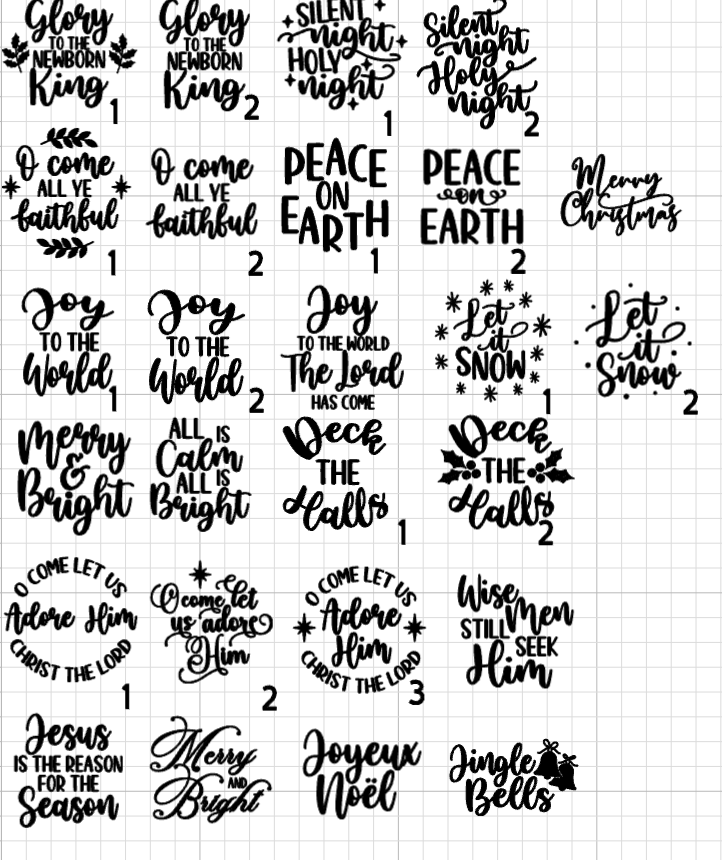 Glory
TO THE
NEWBORN
King
1
Glory
TO THE
NEWBORN
King
2
SILENT
night
HOLY
night
1
Silent
night
Holy
night
2
O come
ALL YE
faithful
1
O come
ALL YE
faithful
2
PEACE
ON
EARTH
1
PEACE
on
EARTH
2
Merry
Christmas
Joy
TO THE
World
1
Joy
TO THE
World
2
Joy
TO THE WORLD
The Lord
HAS COME
Let
it
SNOW
1
Let
it
Snow
2
Merry
&
Bright
ALL IS
Calm
ALL IS
Bright
Deck
THE
Halls
1
Deck
THE
Halls
2
O COME LET US
Adore Him
CHRIST THE LORD
1
O come let
us adore
Him
2
O COME LET US
Adore
Him
CHRIST THE LORD
3
Wise
Men
STILL
SEEK
Him
Jesus
IS THE REASON
FOR THE
Season
Merry
AND
Bright
Joyeux
Noël
Jingle
Bells